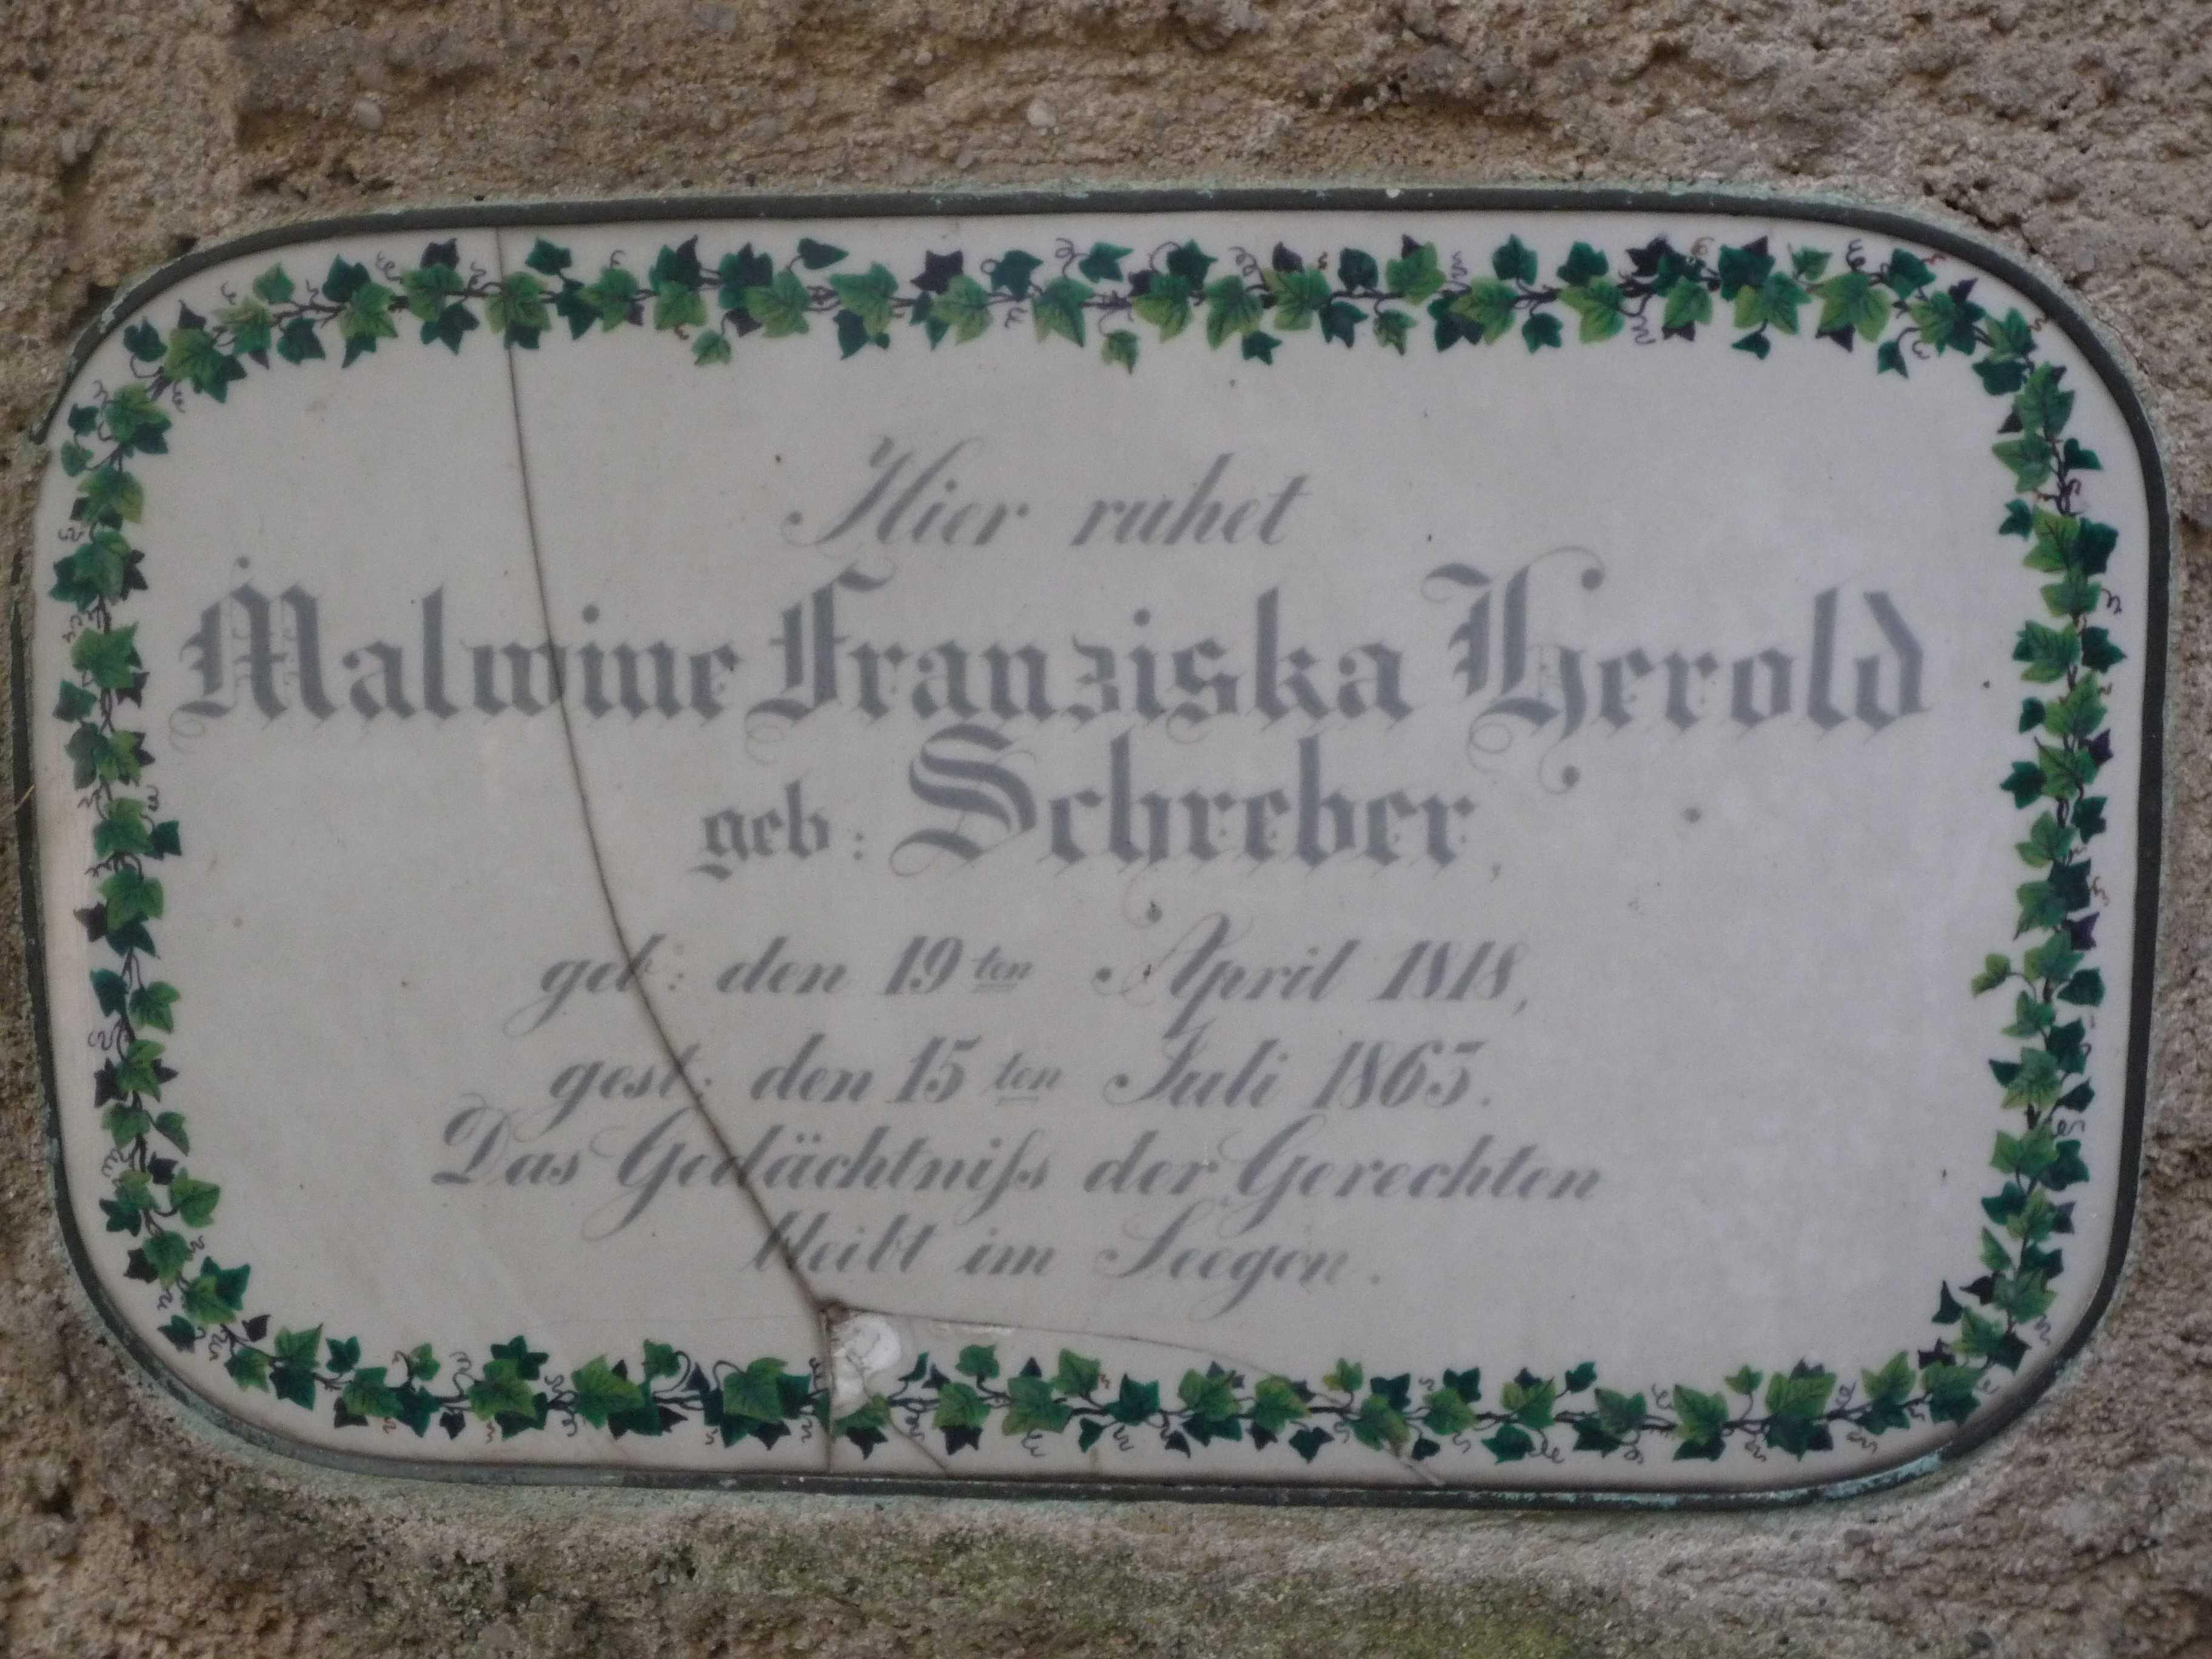 Hier ruhet
Malwine Franziska Herold
geb: Schreber,
geb: den 19ten April 1818,
gest: den 15ten Juli 1863.
Das Gedächtniſs der Gerechten
bleibt im Seegen.